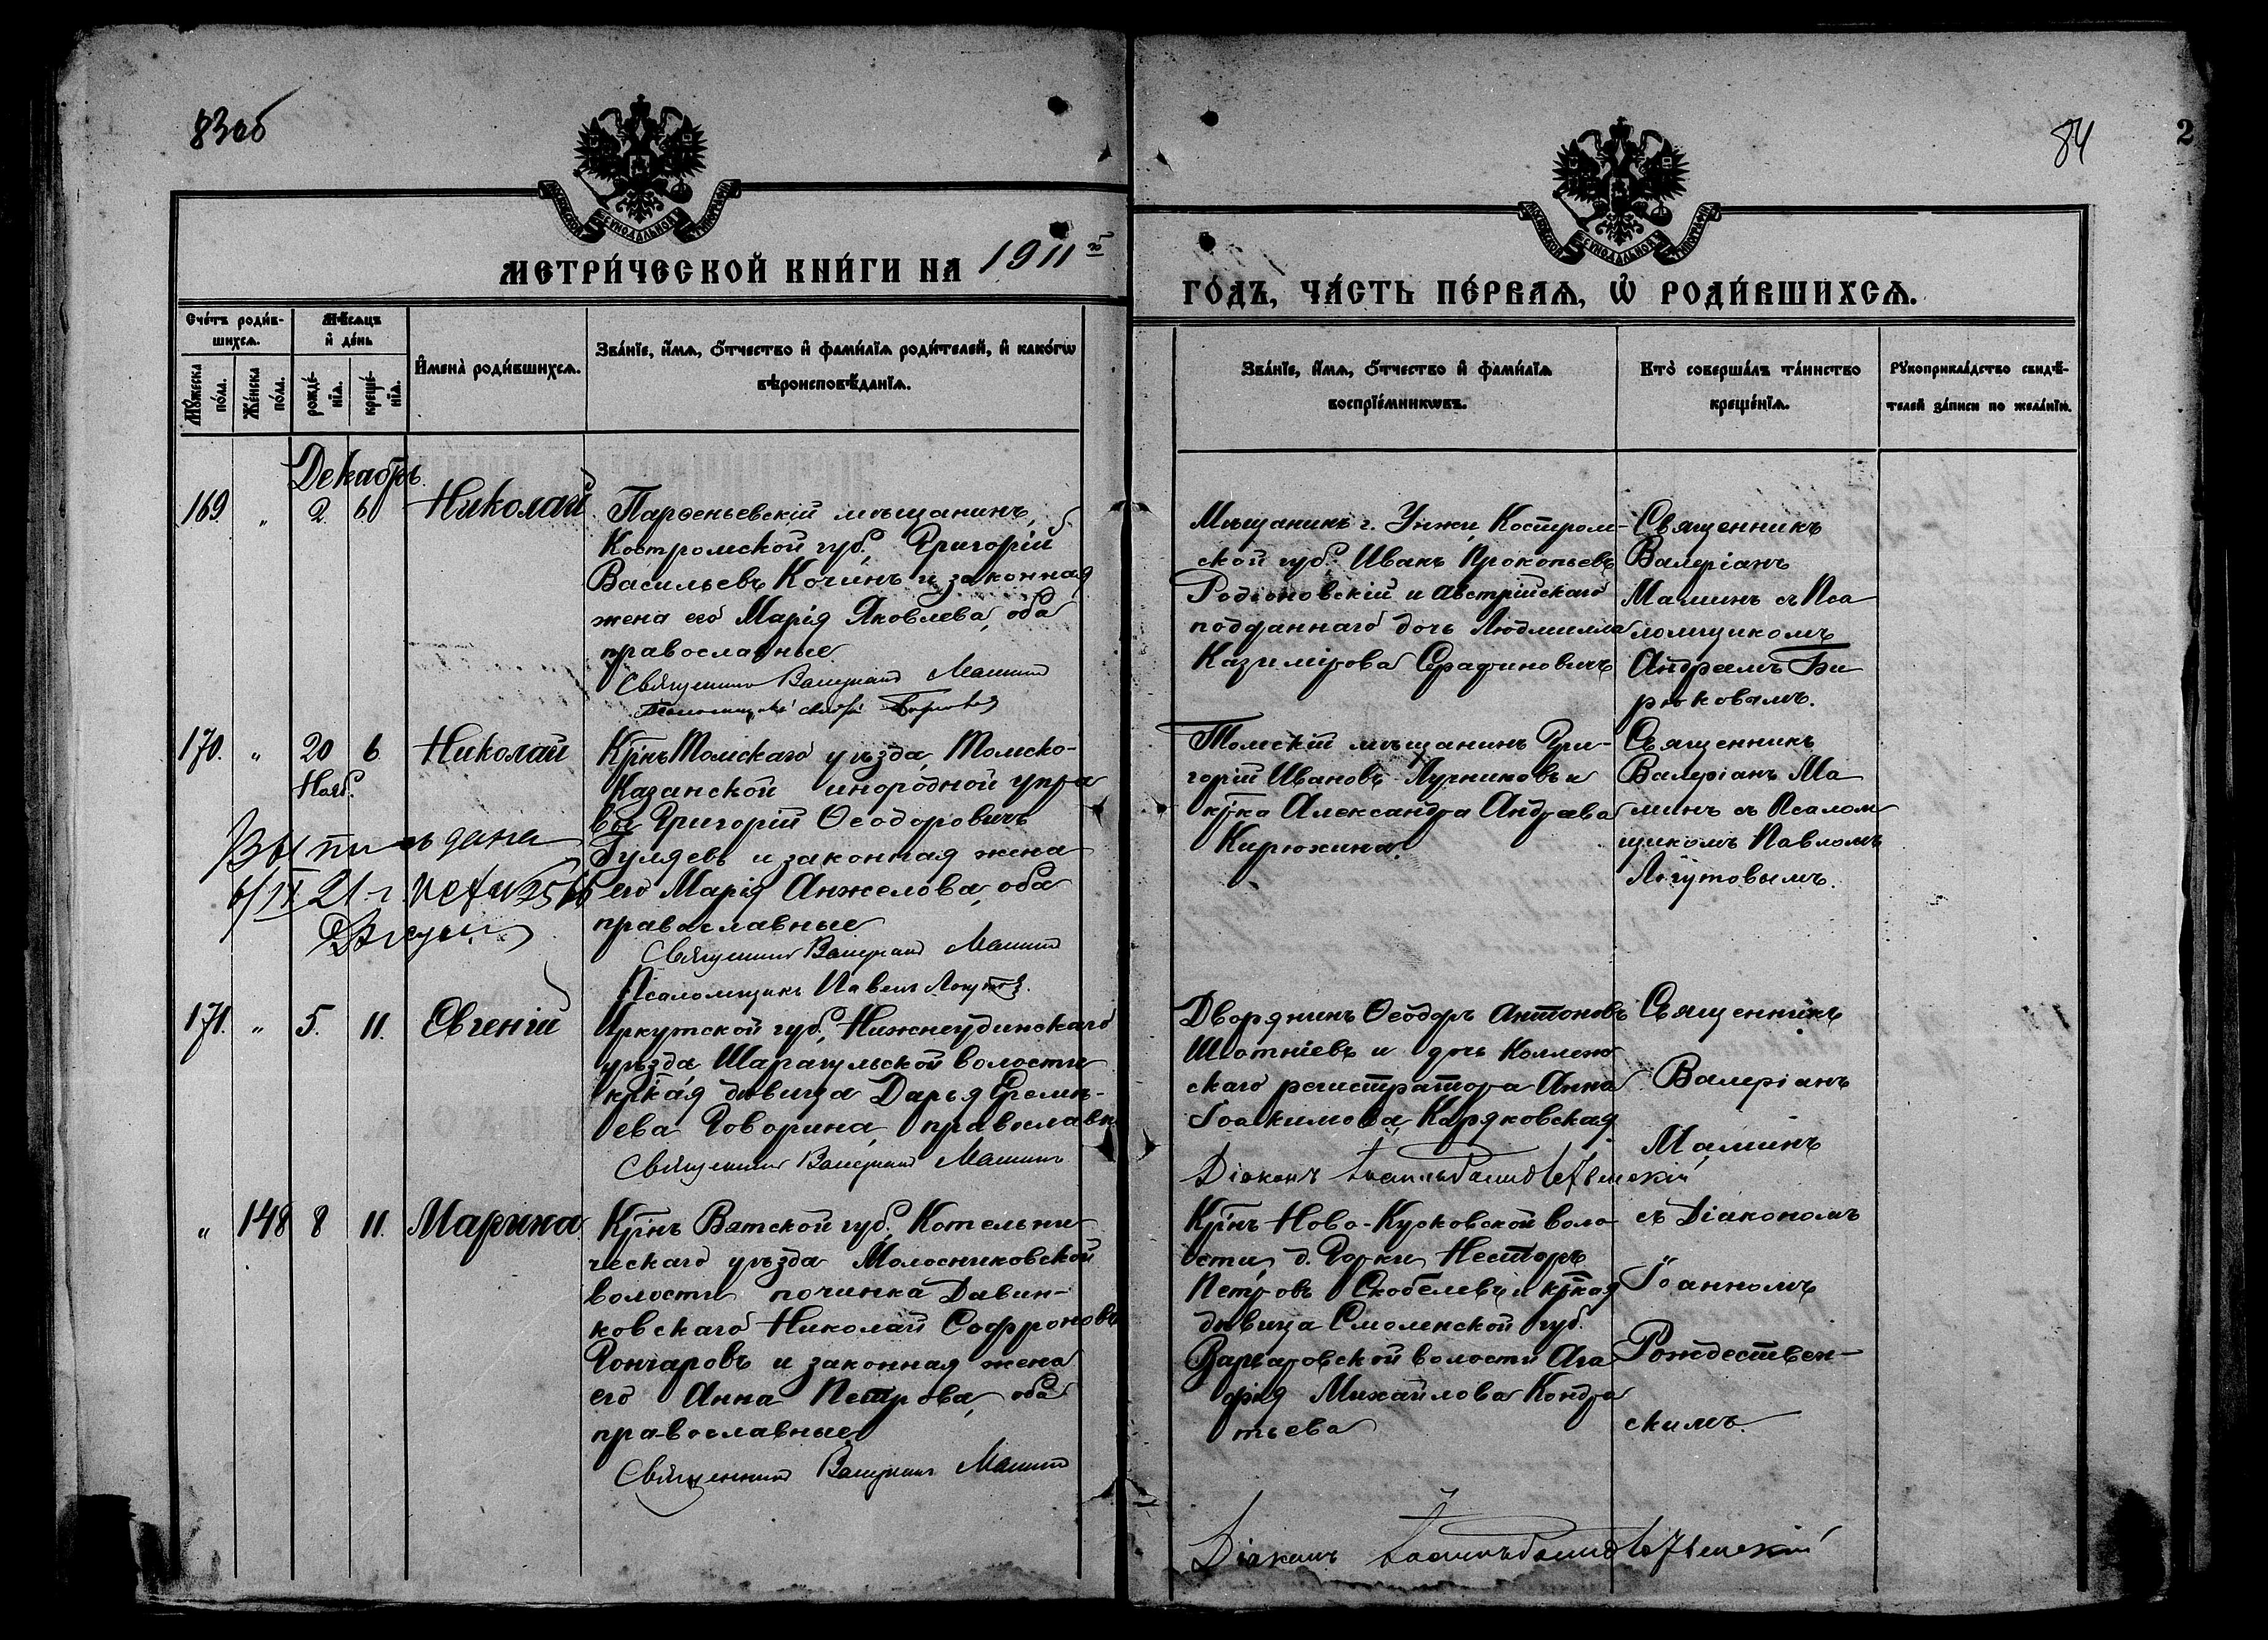 83об
84
2
МЕТРИ́ЧЕСКОЙ КНИ́ГИ НА 1911й
ГО́ДЪ, ЧА́СТЬ ПЕ́РВАЯ, Ѽ РОДИ́ВШИХСЯ.
Сче́тъ роди́в-
шихся.
Мѣсяцъ
и҆ де́нь
Мꙋ́жеска
по́ла.
Же́нска
по́ла.
рожде́-
нїя.
креще́-
нїя.
И҆мена̀ роди́вшихся.
Зва́нїе, и҆́мя, ѻ҆́тчество и҆ фами́лїя роди́телей, и҆ како́гѡ
вѣроисповѣ́данїя.
Зва́нїе, и҆́мя, ѻ҆́тчество и҆ фами́лїя
воспрїе́мникѡвъ.
Кто̀ соверша́лъ та́инство
креще́нїя.
Рꙋкоприкла́дство свидѣ́-
телей за́писи по жела́нїю.
Декабрь
169 „ 2 6 Николай
Парѳеньевскій мѣщанинъ,
Костромской губ., Григорій
Васильевъ Кочинъ и законная
жена его Марія Яковлева, оба
православные
Священникъ Валеріанъ Маминъ
Мѣщанинъ г. Унжи, Костром-
ской губ. Иванъ Прокопьевъ
Родіоновскій и австрійскаго
подданнаго дочь Людмилла
Казимірова Серафиновичъ
Священникъ
Валеріанъ
Маминъ съ Пса
ломщикомъ
Андреемъ Би
рюковымъ.
170. „ 20 6 Николай
Нояб.
Крнъ Томскаго уѣзда, Томско-
Казанской инородной упра
вы Григорій Ѳеодоровичъ
Гуляевъ и законная жена
его Марія Анжелова, оба
православные
Священникъ Валеріанъ Маминъ
Псаломщикъ Павелъ Логутовъ.
дана
6/IX 21 г.
Томскій мѣщанинъ Гри-
горій Ивановъ Лучниковъ и
кр̃ка Александра Андреева
Кирюхина.
Священникъ
Валеріанъ Ма
минъ съ Псалом
щикомъ Павломъ
Логутовымъ.
171. „ 5. 11. Евгеній
Иркутской губ., Нижнеудинскаго
уѣзда Шарагульской волости
кр̃кая дѣвица Дарья Еремѣ-
ева Говорина, православн
Священникъ Валеріанъ Маминъ
Дворянинъ Ѳеодоръ Антоновъ
и дочь Коллеж
скаго регистратора Анна
Іоакимова Каряковская
Діаконъ Іоаннъ Рождественскій
Священникъ
Валеріанъ
Маминъ
съ Діакономъ
Іоанномъ
Рождествен-
скимъ.
„ 148 8 11. Марина
Кр̃нъ Вятской губ., Котельни
ческаго уѣзда Молосниковской
волости починка Давин-
ковскаго Николай Софроновъ
Гончаровъ и законная жена
его Анна Петрова, оба
православные
Священникъ Валеріанъ Маминъ
Кр̃нъ Ново-Кусковской воло
сти, д. Горки Несторъ
Петровъ Скобелевъ и кр̃кая
дѣвица Смоленской губ.
Варваровской волости Ага
фія Михайлова Кондра
тьева
Діаконъ Іоаннъ Рождественскій